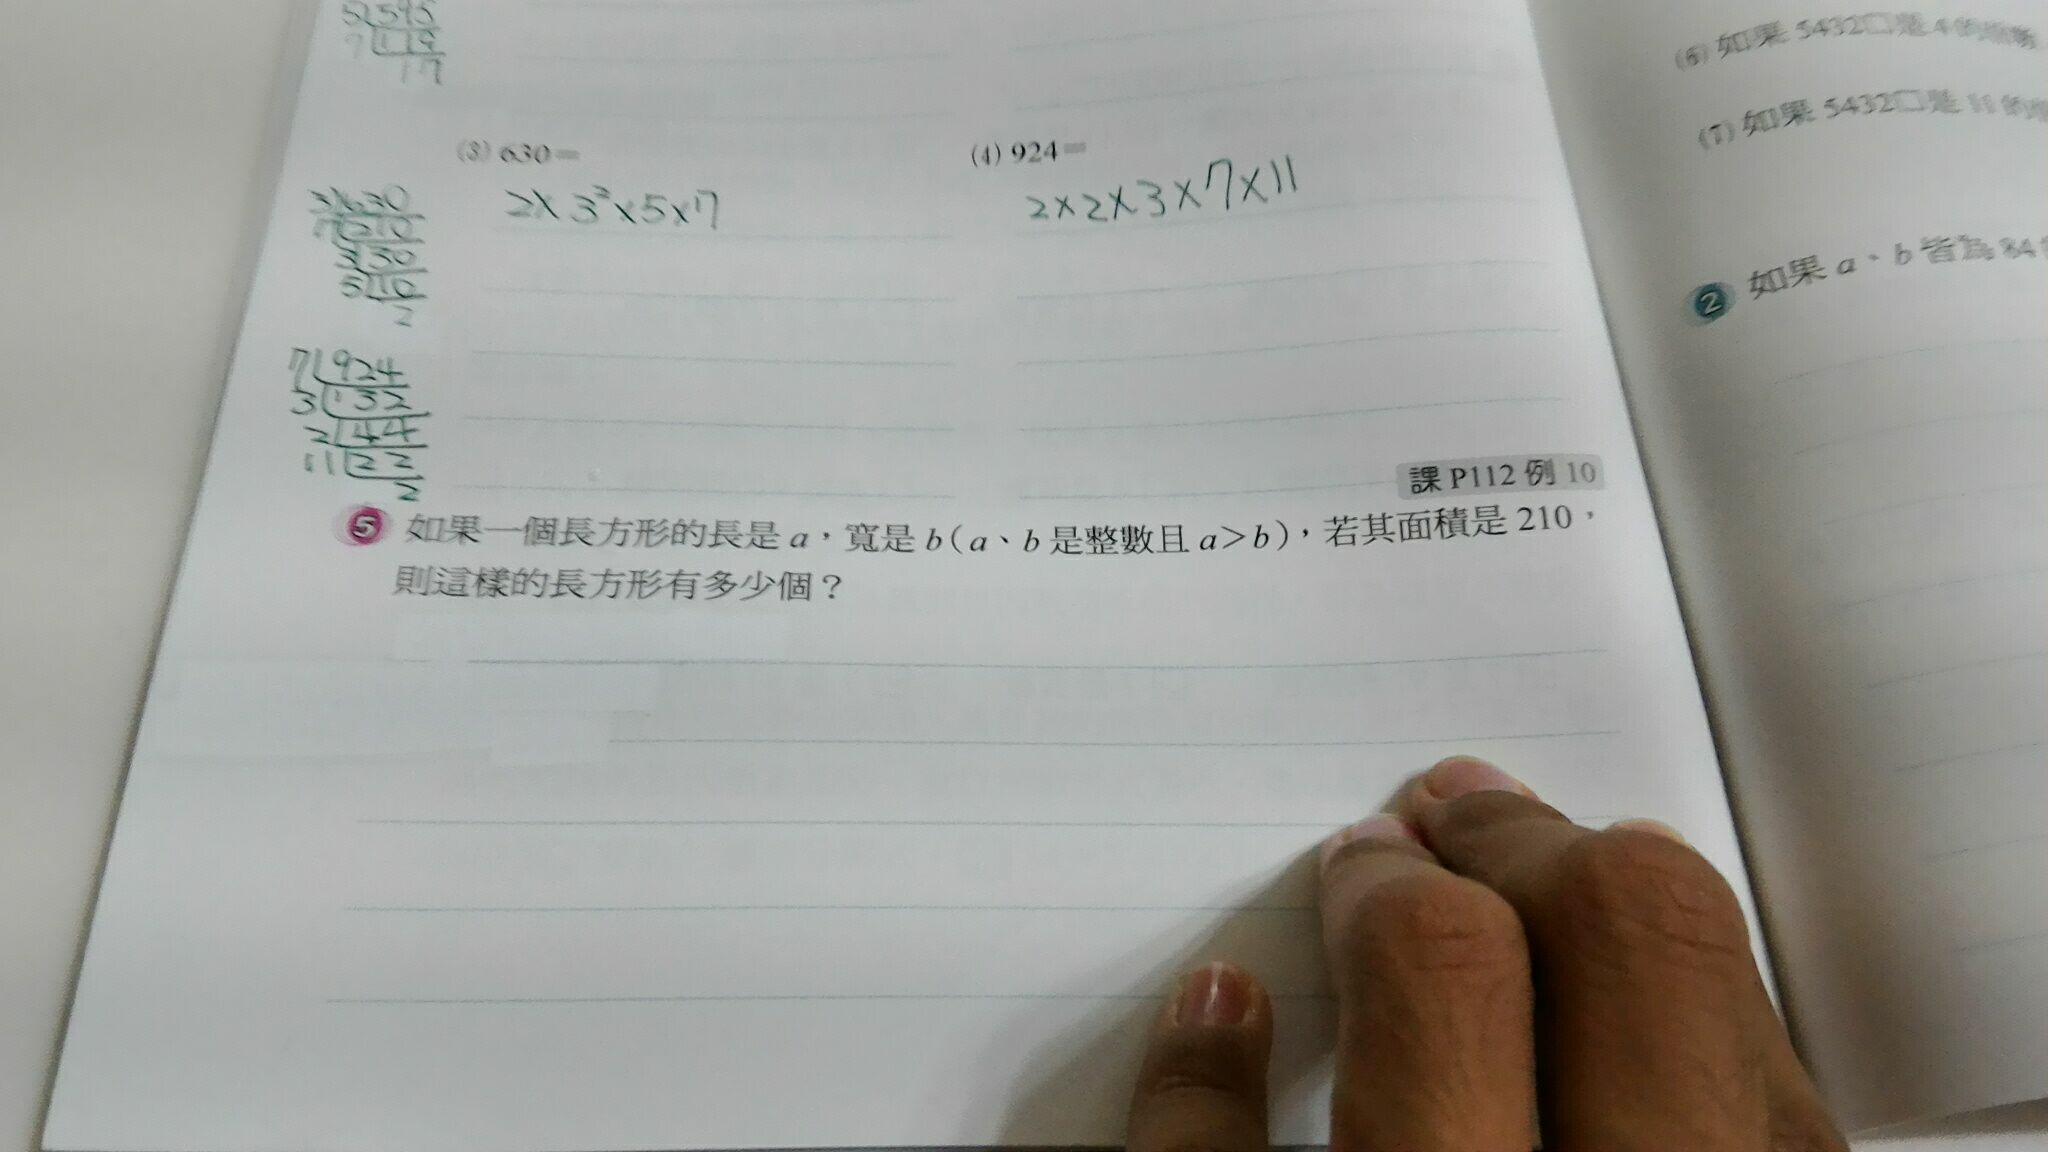 5 595
7 119
17
(3) 630=
2×3²×5×7
3 630
7 210
3 30
5 10
2
(4) 924=
2×2×3×7×11
7 924
3 132
2 44
11 22
2
課 P112 例 10
5 如果一個長方形的長是 a，寬是 b（a、b 是整數且 a＞b），若其面積是 210，
則這樣的長方形有多少個？
(6) 如果 5432□是 4 的倍數
(7) 如果 5432□是 11 的
2 如果 a、b 皆為 84